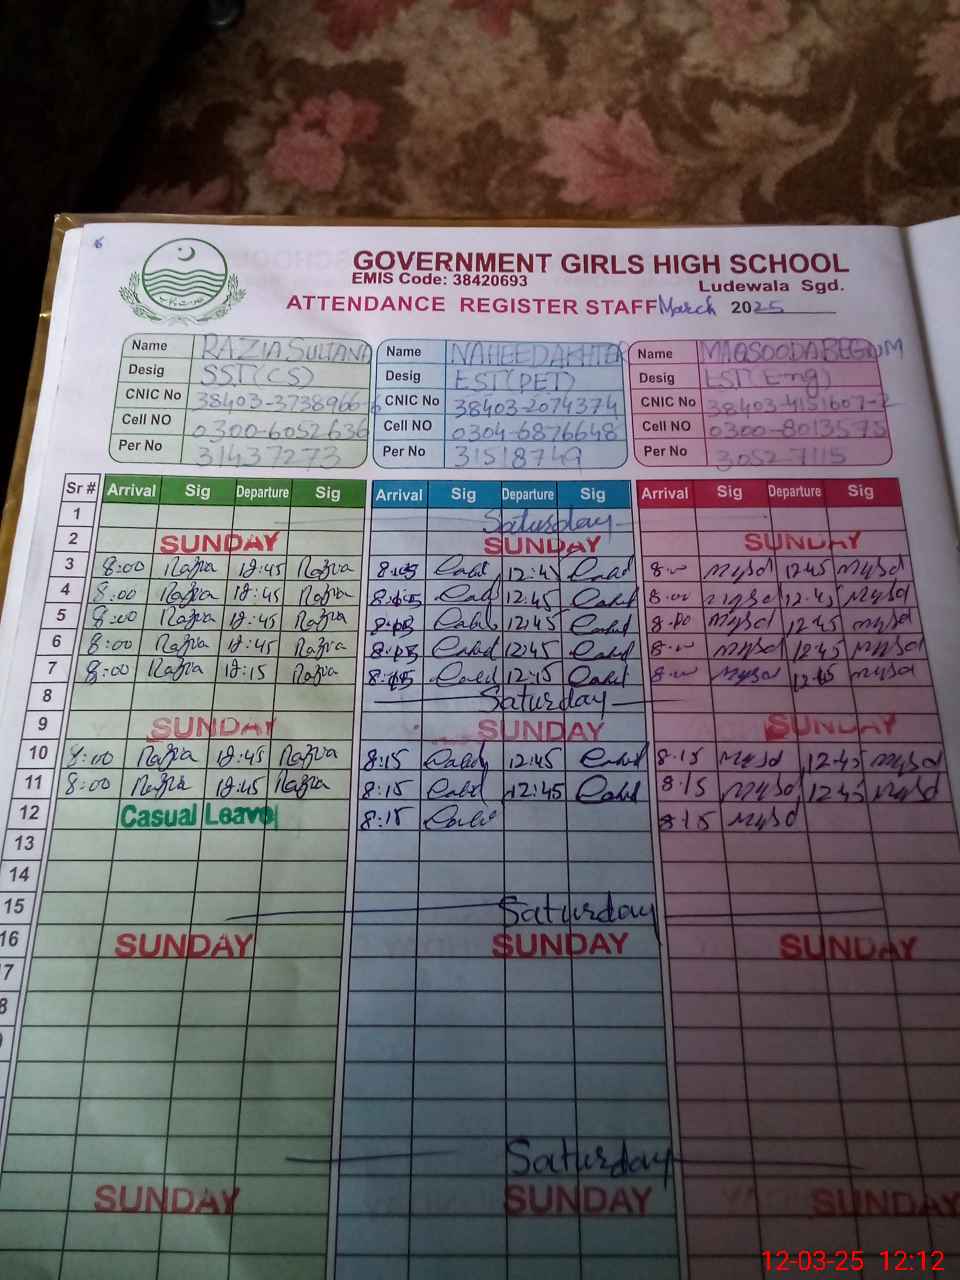 6
GOVERNMENT GIRLS HIGH SCHOOL
EMIS Code: 38420693
Ludewala Sgd.
ATTENDANCE REGISTER STAFF March 2025
Name RAZIA SULTANA Name NAHEED AKHTER Name MAQSOODA BEGUM
Desig SST(CS) Desig EST(PET) Desig EST(Eng)
CNIC No 38403-3738966-6 CNIC No 38403-2074374 CNIC No 38403-4151607-2
Cell NO 0300-6052636 Cell NO 0304-6876648 Cell NO 0300-8013575
Per No 31437273 Per No 31518749 Per No 30527115
Sr # Arrival Sig Departure Sig Arrival Sig Departure Sig Arrival Sig Departure Sig
1 Saturday
2 SUNDAY SUNDAY SUNDAY
3 8:00 Razia 12:45 Razia 12:45 8:00 12:45
4 8:00 Razia 12:45 Razia 12:45 8:00 12:45
5 8:00 Razia 12:45 Razia 12:45 8:00 12:45
6 8:00 Razia 12:45 Razia 12:45 8:00 12:45
7 8:00 Razia 12:15 Razia 12:15 8:00
8 Saturday
9 SUNDAY SUNDAY SUNDAY
10 8:00 Razia 12:45 Razia 8:15 12:45 8:15 12:45
11 8:00 Razia 12:45 Razia 8:15 12:45 8:15 12:45
12 Casual Leave 8:15 8:15
13
14
15 Saturday
16 SUNDAY SUNDAY SUNDAY
Saturday
SUNDAY SUNDAY SUNDAY
12-03-25 12:12